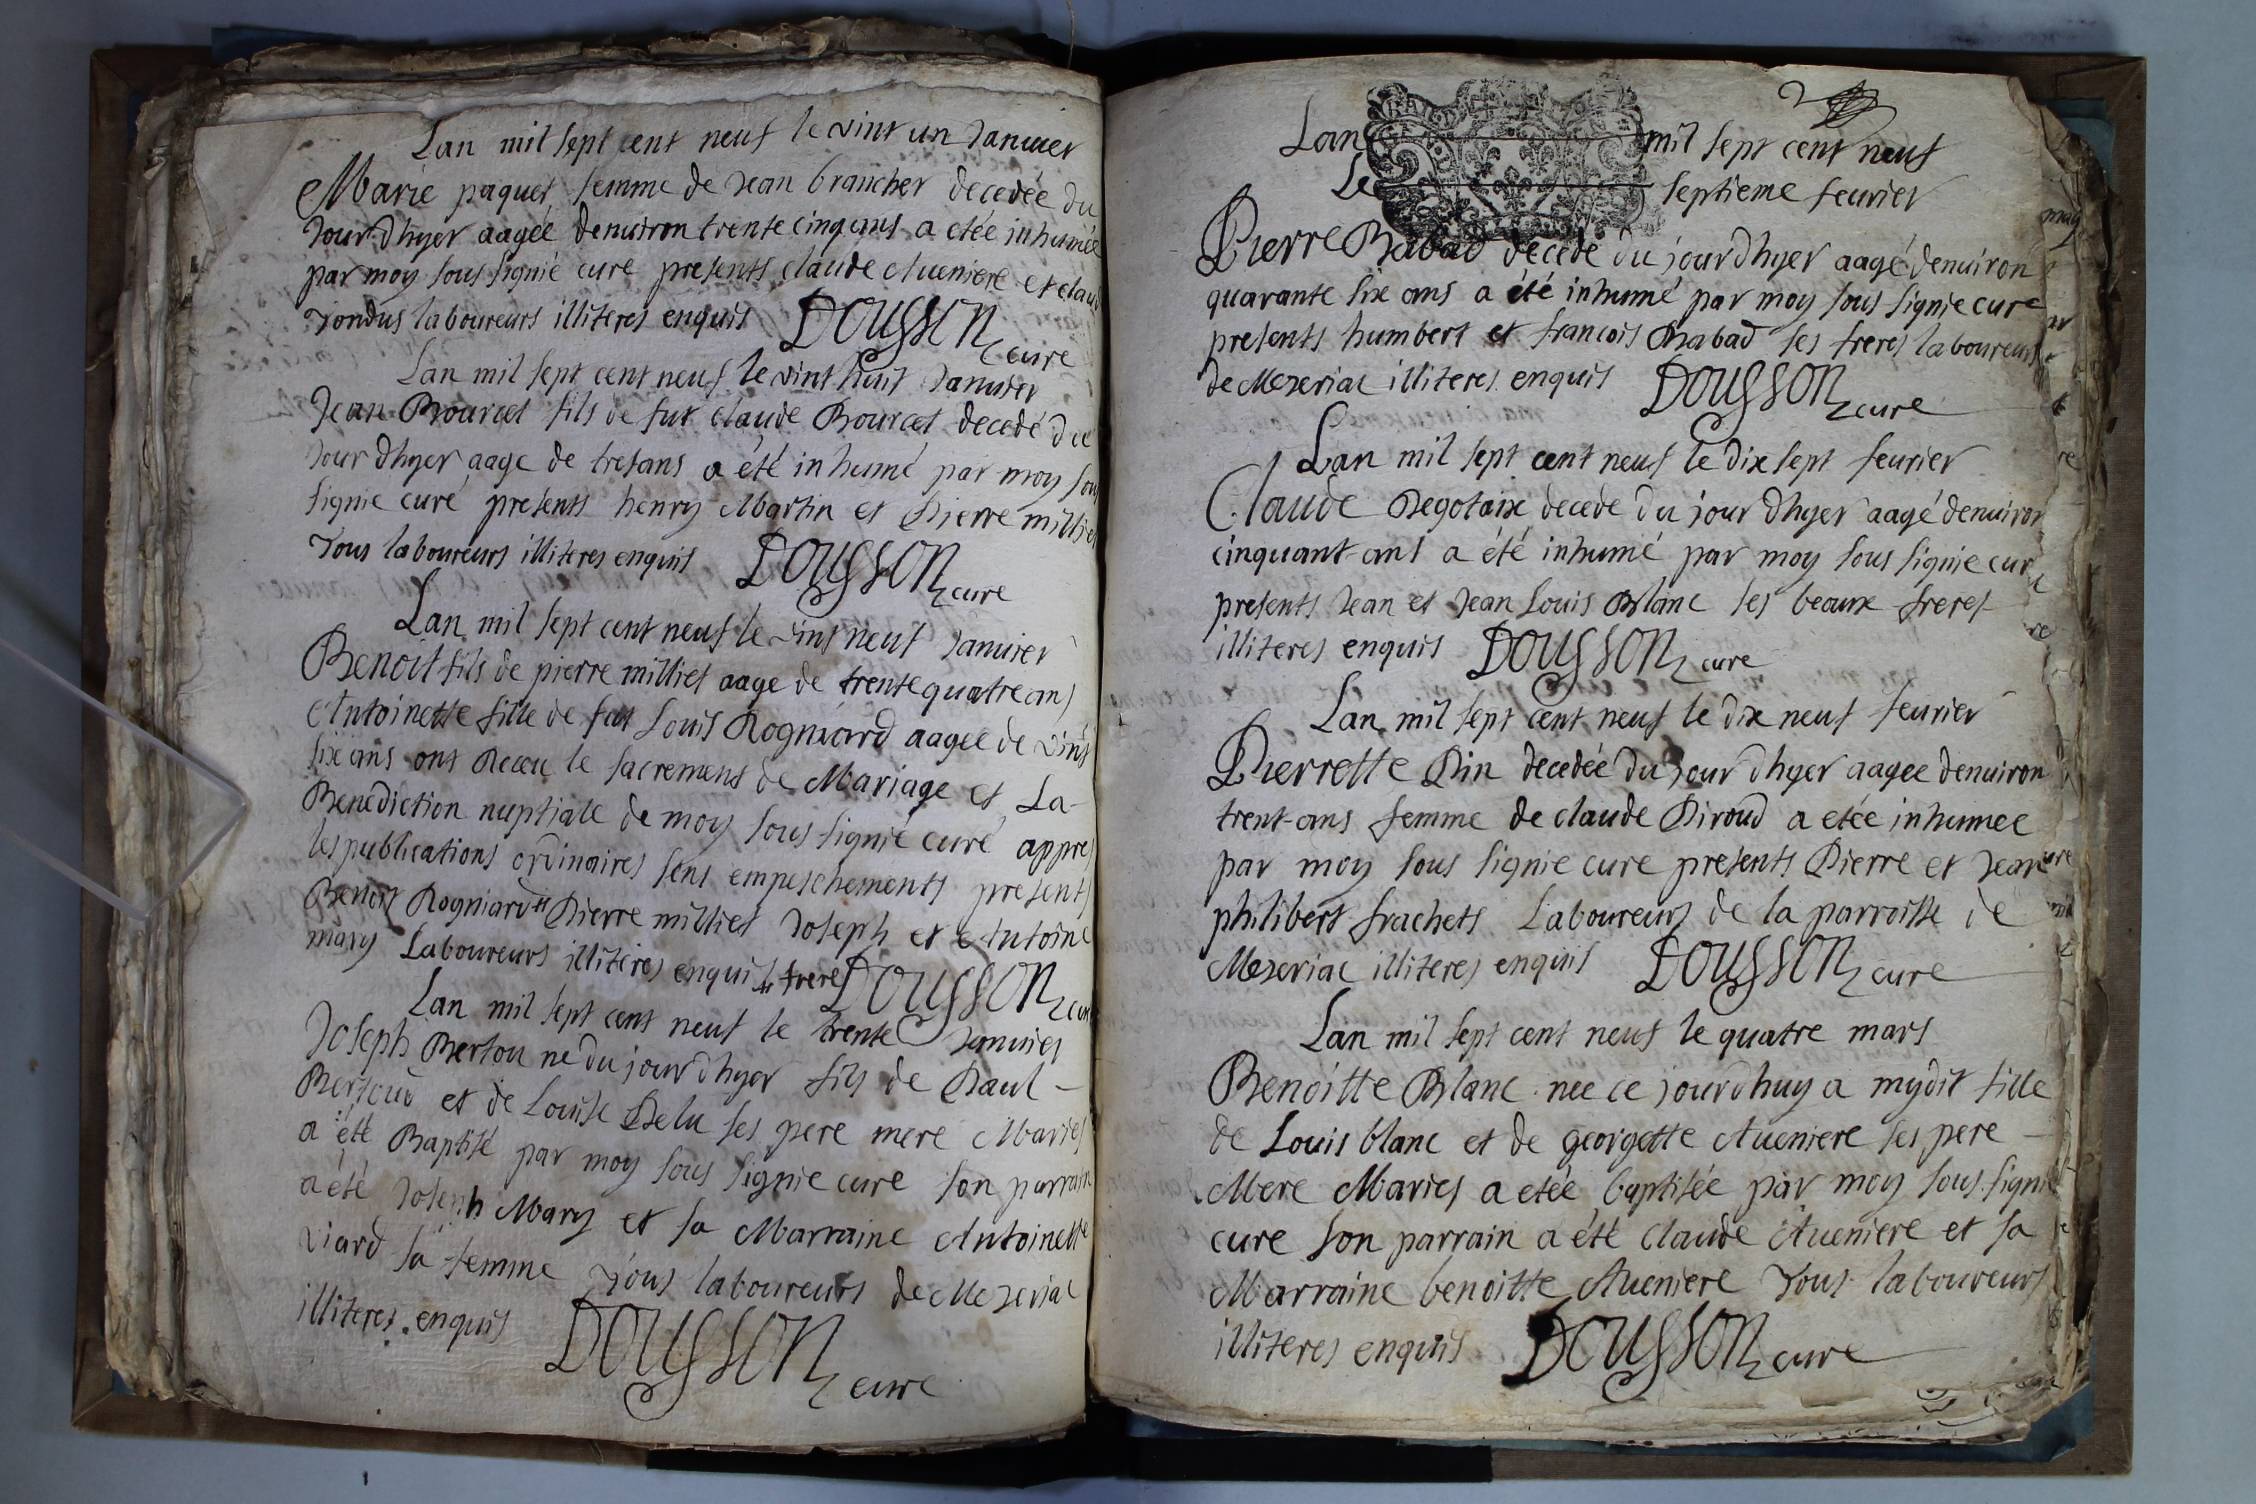 Lan mil sept cent neuf le vint un Janvier
Marie paquet femme de Jean brancher decedée du
Jour dhyer aagée denuiron trente cinq ans a etée inhumée
par moy sous signié curé presents claude Aueniere et claude
rondus laboureurs illiteres enquis DOUSSON cure
Lan mil sept cent neuf le vint huit Januier
Jean Bourcet fils de fut claude Bourcet decedé du
Jour dhyer aage de tresans a été inhumé par moy sous
signie curé presents henry Martin et Pierre milliet
Tous laboureurs illiteres enquis DOUSSON cure
Lan mil sept cent neuf le vint neuf Januier
Benoit fils de pierre milliet aage de trente quatre ans
Antoinette fille de fut Louis Rogniard aagee de vint
six ans ont Receu le sacrement de Mariage et La-
Benediction nuptiale de moy sous signié curé appres
les publications ordinaires sens empeschements presents
Benoit Rogniard Pierre milliet Joseph et Antoine
mary Laboureurs illiteres enquis frere DOUSSON cure
Lan mil sept cent neuf le trente Januier
Joseph Bertou né du jour dhyer fils de Paul -
et de Louise Belu ses pere mere Maries
a été Baptisé par moy sous signie cure son parrain
a été Joseph Mary et sa Marraine Antoinette
viard sa femme Tous laboureurs de Mezeriat
illiteres enquis DOUSSON cure
Lan mil sept cent neuf
Le septieme feurier
Pierre Rabad decedé du jour dhyer aagé denuiron
quarante six ans a été inhumé par moy sous signie cure
presents humbert et francois Rabad ses freres laboureurs
de Mezeriac illiteres enquis DOUSSON cure
Lan mil sept cent neuf le dix sept feurier
Claude decede du jour dhyer aagé denuiron
cinquant ans a été inhumé par moy sous signie cure
presents Jean et Jean Louis Blanc ses beaux freres
illiteres enquis DOUSSON cure
Lan mil sept cent neuf le dix neuf feurier
Pierrette Pin decedée du jour dhyer aagee denuiron
trent ans femme de claude Piroud a etée inhumee
par moy sous signie cure presents Pierre et Jean
philibert frachets Laboureurs de la parroisse de
Mezeriac illiteres enquis DOUSSON cure
Lan mil sept cent neuf le quatre mars
Benoitte Blanc nee ce jourdhuy a mydit fille
de Louis blanc et de georgette Aueniere ses pere -
Mere Maries a etée baptisée par moy sous signie
cure son parrain a été claude Aueniere et sa
Marraine benoitte Aueniere Tous laboureurs
illiteres enquis DOUSSON cure